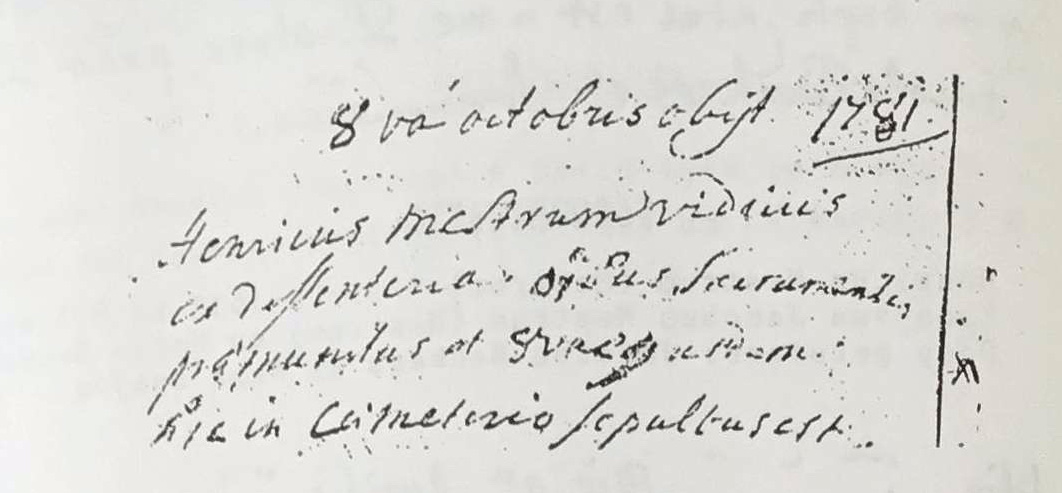 8va octobris obijt 1781
Henricus Mestrum viduus
ex dissenteria oibus Sacramentis
præmunitus et 8va ejusdem
hic in Cæmeterio sepultus est